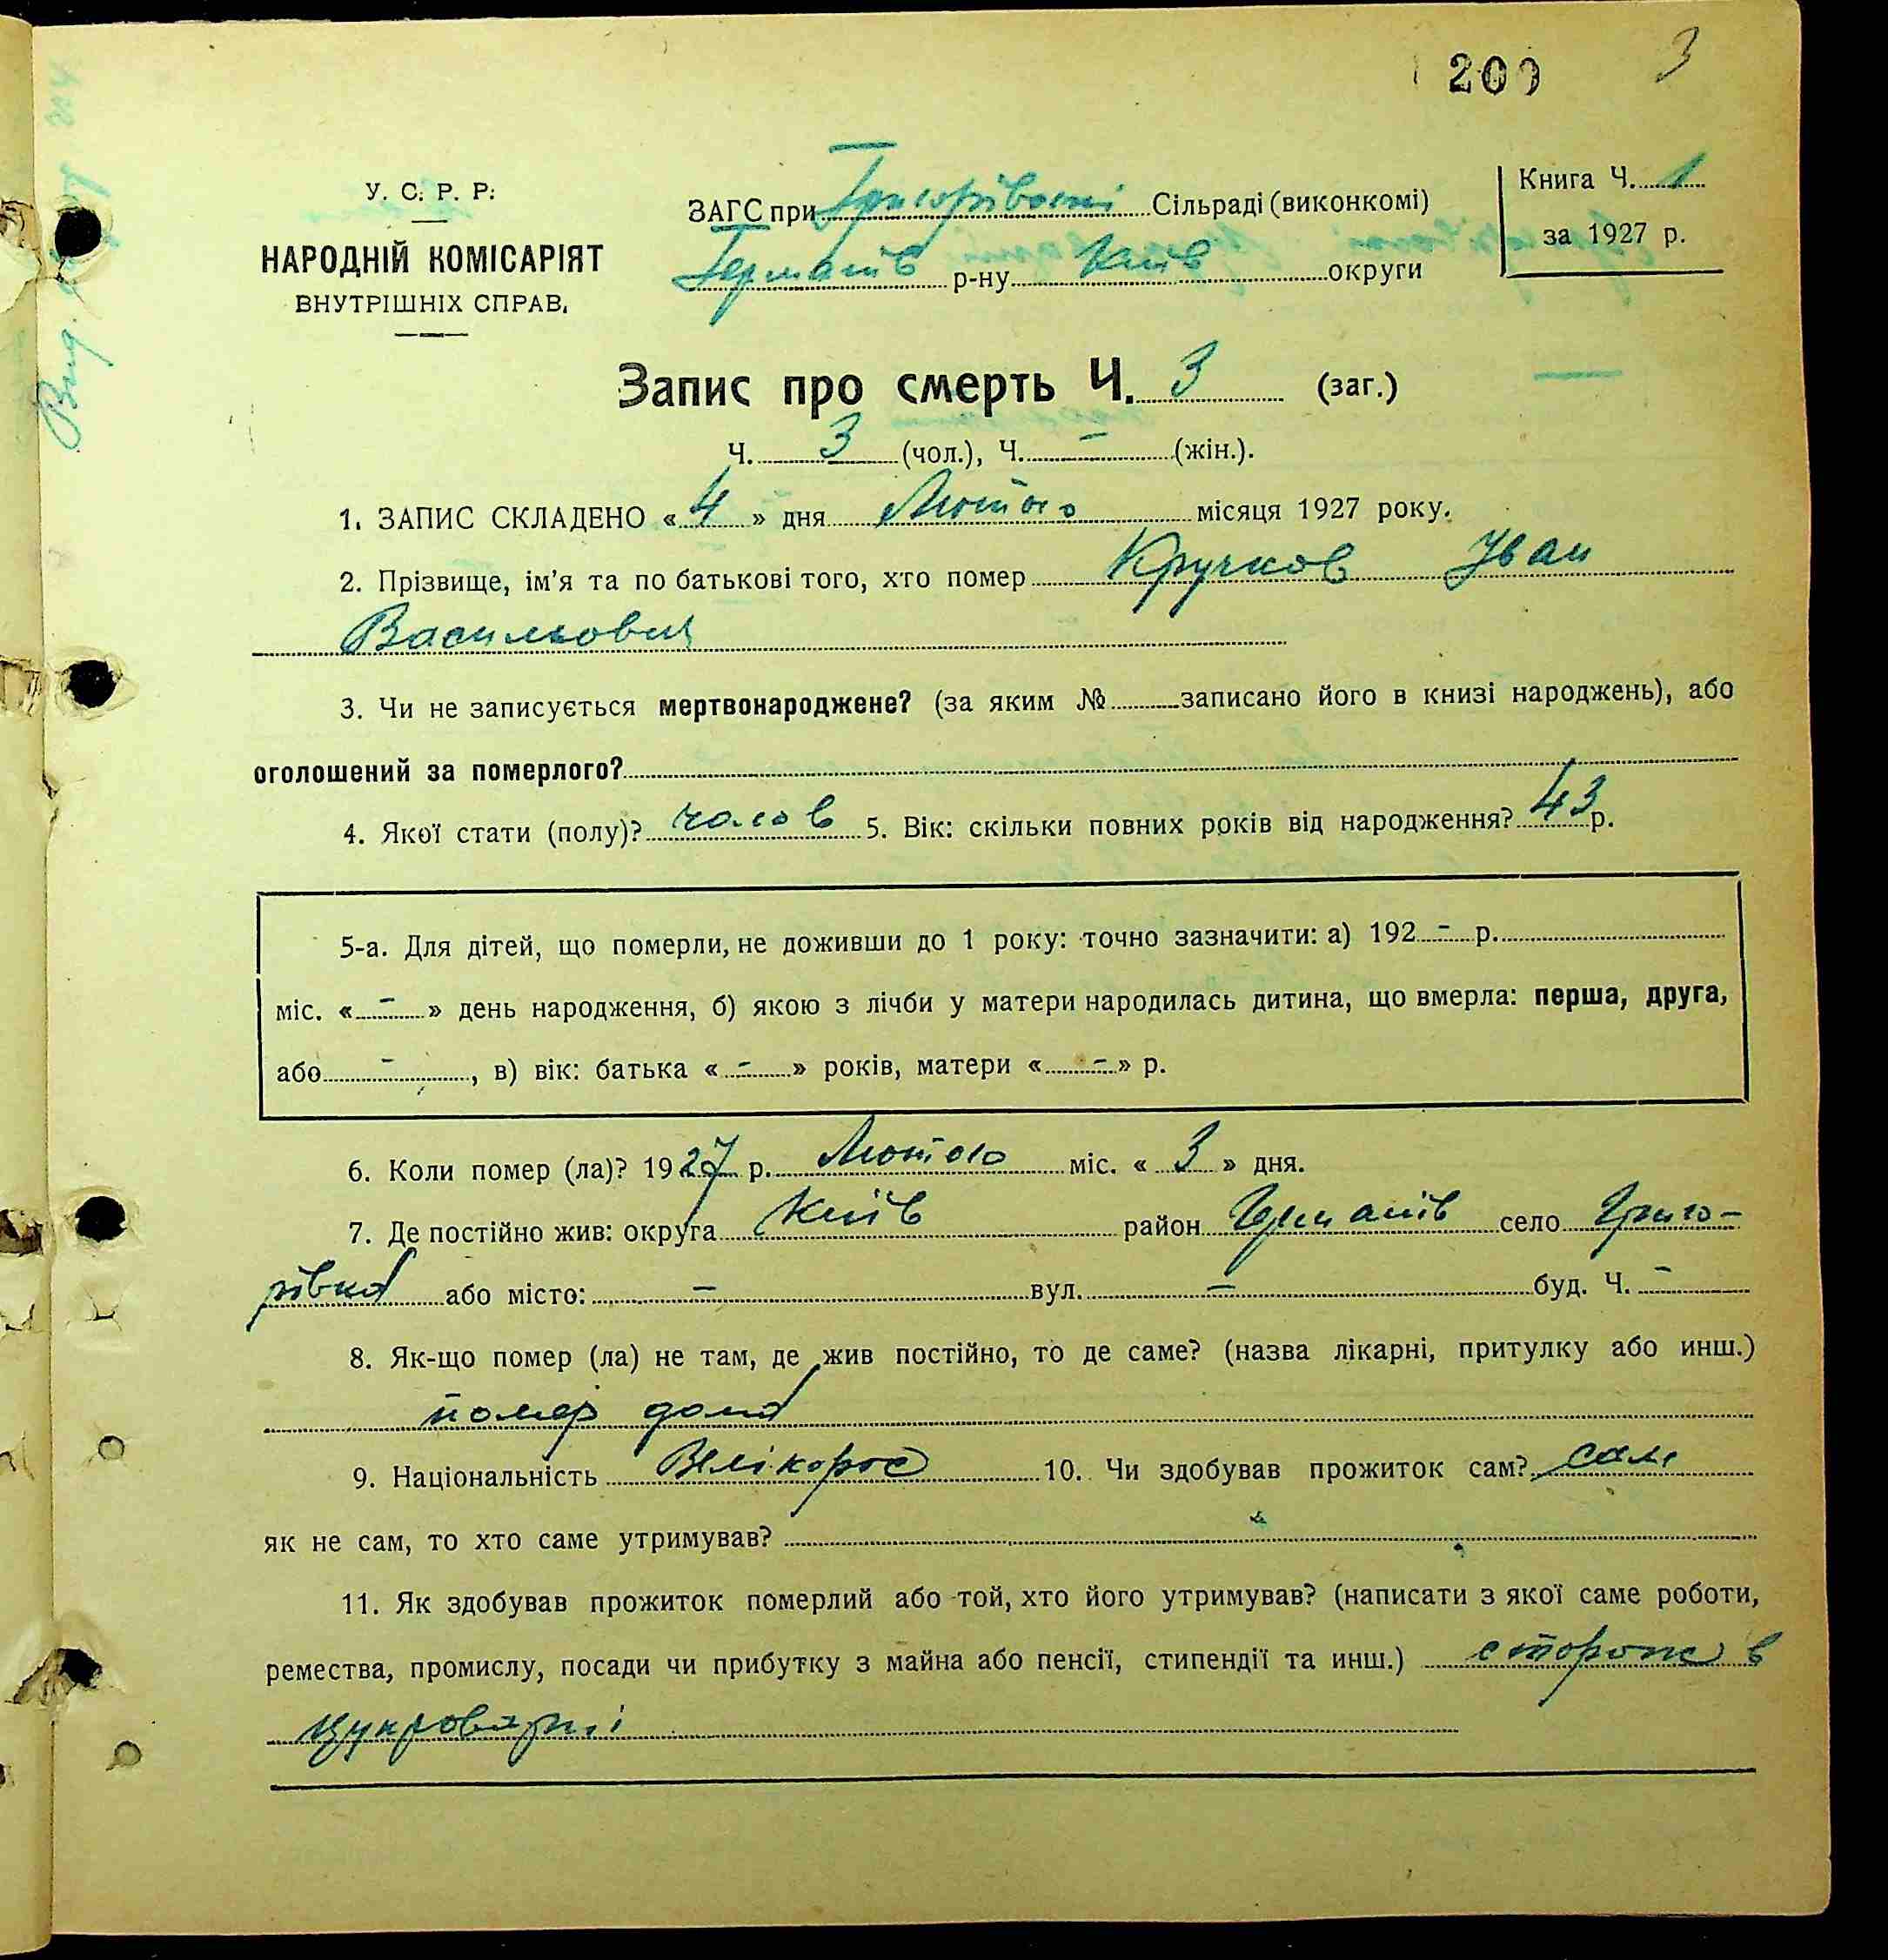 200 3
У. С. Р. Р.
НАРОДНІЙ КОМІСАРІЯТ
ВНУТРІШНІХ СПРАВ.
ЗАГС при Григорівської Сільраді (виконкомі)
Германів р-ну Київ округи
Книга Ч. 1
за 1927 р.
Запис про смерть Ч. 3 (заг.)
Ч. 3 (чол.), Ч. – (жін.).
1. ЗАПИС СКЛАДЕНО «4» дня Лютого місяця 1927 року.
2. Прізвище, ім’я та по батькові того, хто помер Кручков Іван
Васильович
3. Чи не записується мертвонароджене? (за яким № записано його в книзі народжень), або
оголошений за померлого?
4. Якої стати (полу)? чолов 5. Вік: скільки повних років від народження? 43 р.
5-а. Для дітей, що померли, не доживши до 1 року: точно зазначити: а) 192 – р.
міс. « – » день народження, б) якою з лічби у матери народилась дитина, що вмерла: перша, друга,
або – , в) вік: батька « – » років, матери « – » р.
6. Коли помер (ла)? 1927 р. Лютого міс. « 3 » дня.
7. Де постійно жив: округа Київ район Германів село Григо-
рівка або місто: – вул. – буд. Ч. –
8. Як-що помер (ла) не там, де жив постійно, то де саме? (назва лікарні, притулку або инш.)
помер дома
9. Національність Велікорос 10. Чи здобував прожиток сам? сам
як не сам, то хто саме утримував?
11. Як здобував прожиток померлий або той, хто його утримував? (написати з якої саме роботи,
ремества, промислу, посади чи прибутку з майна або пенсії, стипендії та инш.) сторож в
цукроварні
Вид.